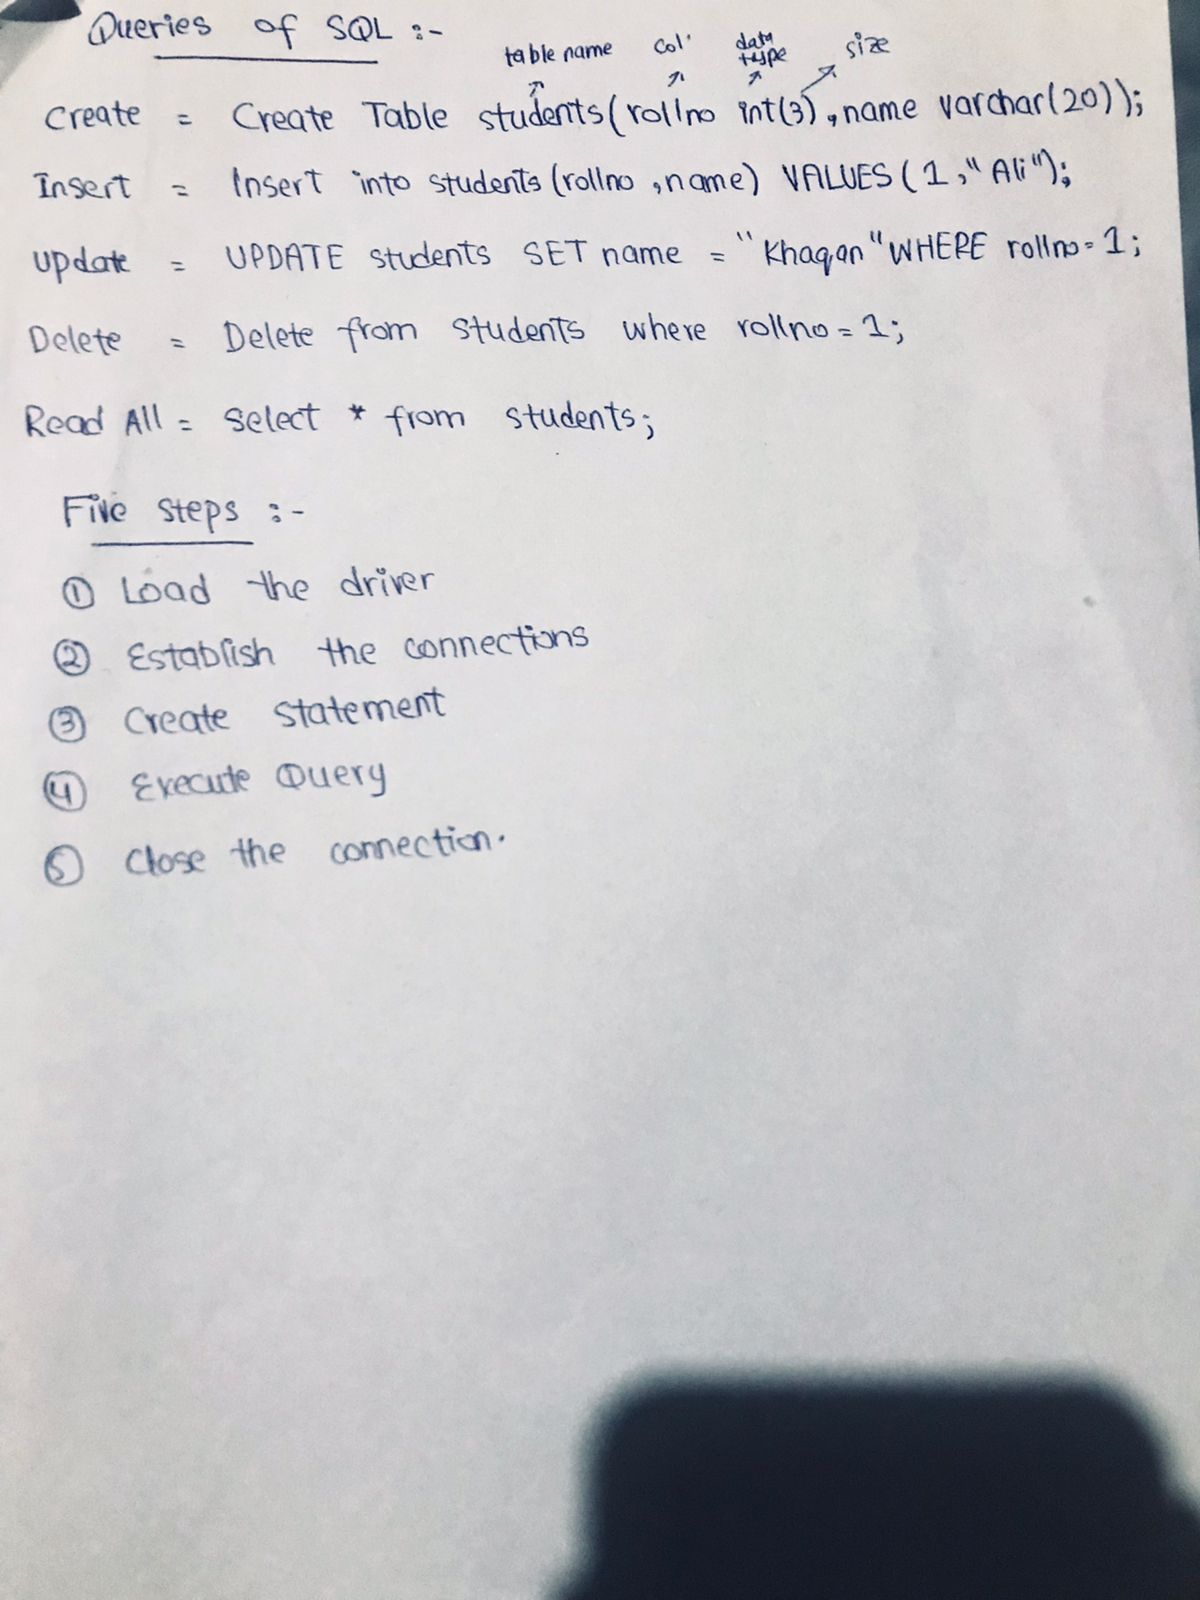 Queries of SQL :-
table name col' data type size
Create = Create Table students(rollno int(3), name varchar(20));
Insert = Insert into students(rollno, name) VALUES(1,"Ali");
Update = UPDATE students SET name = "Khaqan" WHERE rollno=1;
Delete = Delete from students where rollno = 1;
Read All = Select * from students;
Five steps :-
① Load the driver
② Establish the connections
③ Create statement
④ Execute Query
⑤ Close the connection.